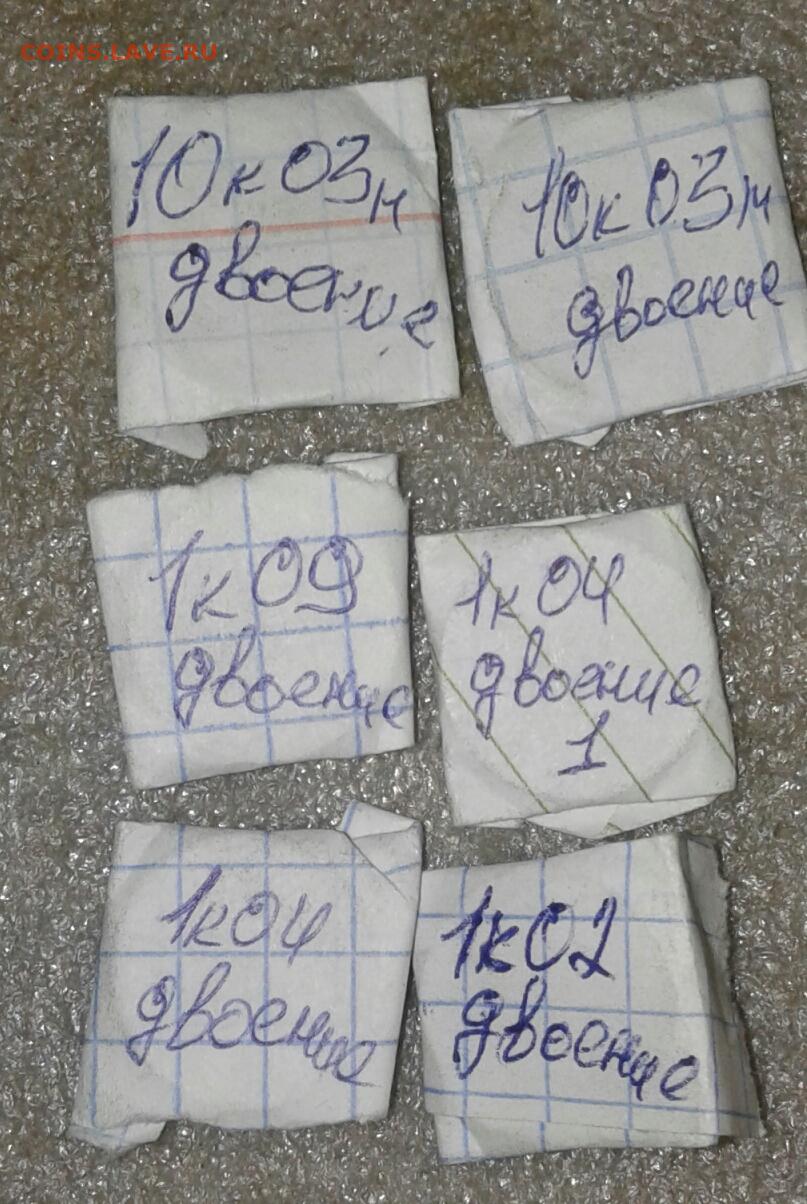 COINS.LAVE.RU
10к 03м
двоение
10к 03м
двоение
1к 09
двоение
1к 04
двоение
1
1к 04
двоение
1к 02
двоение